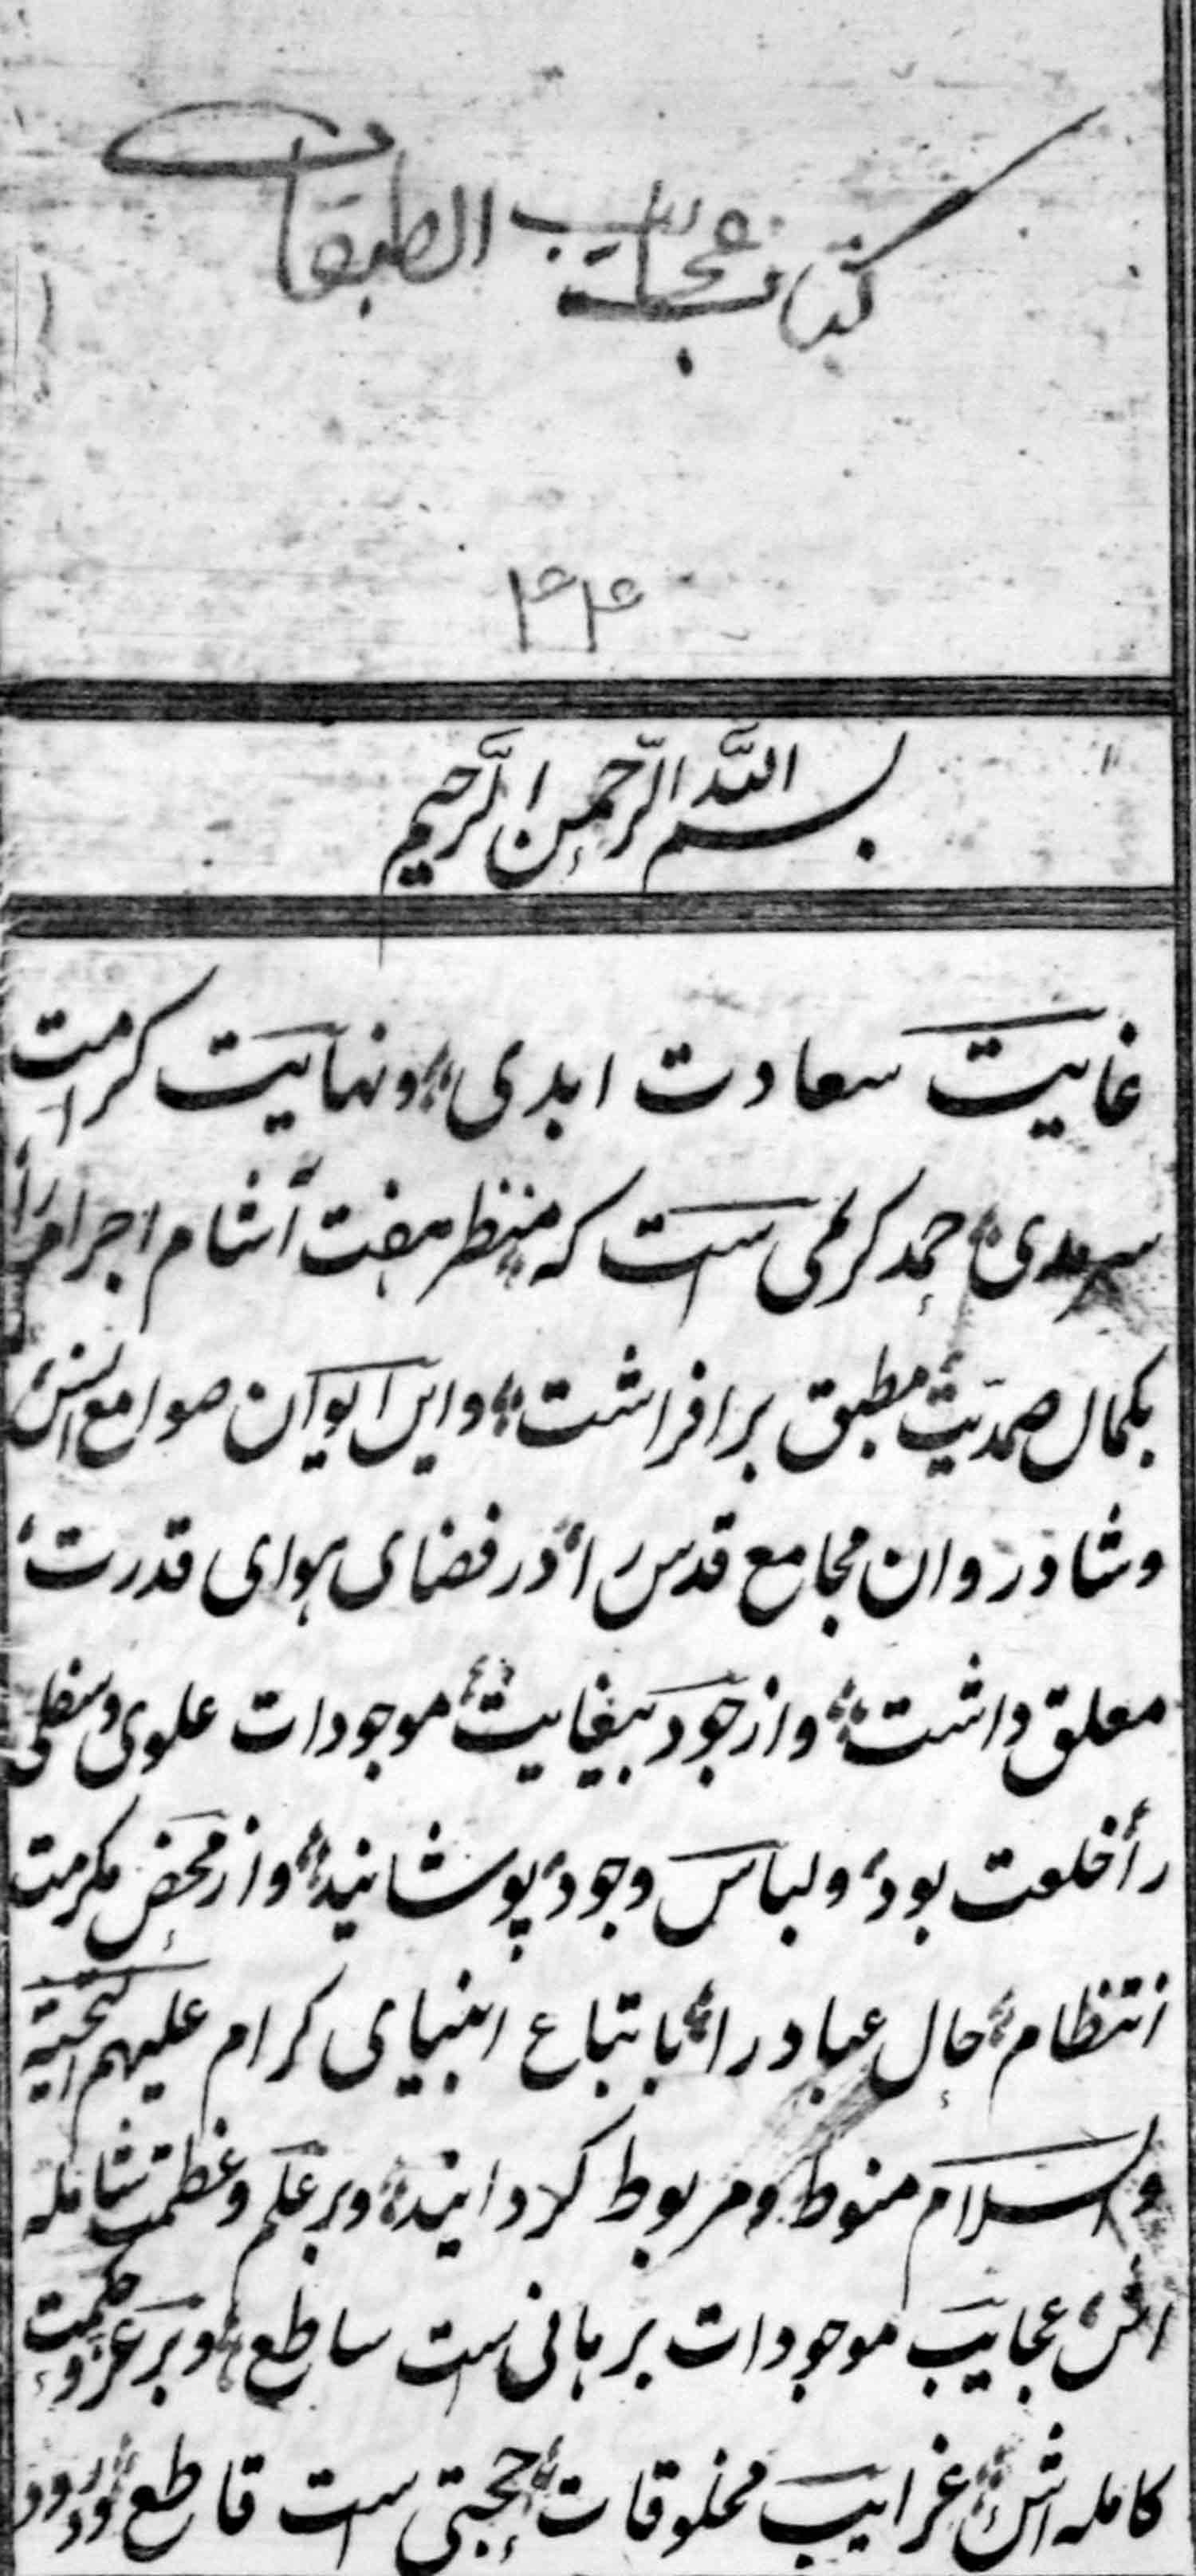 کتاب عجایب الطبقات
۴۴
بسم اللّه الرّحمن الرّحیم
غایت سعادت ابدی، و نهایت کرامت
سرمدی، حمد کریمی ست که منظر هفت آشام اجرام را
بکمال صمدیت، مطبق برافراشت، و این ایوان صوامع انس،
و شادروان مجامع قدس را، در فضای هوای قدرت،
معلق داشت، و از جود بیغایت، موجودات علوی و سفلی
را خلعت بود، و لباس وجود، پوشانید، و از محض مکرمت
انتظام، حال عباد را، باتباع انبیای کرام علیهم التحیة
والسلام منوط و مربوط کردانید، و بر علم و عظمت شامله
اش، عجایب موجودات برهانی ست ساطع، و بر عز و حکمت
کامله اش، غرایب مخلوقات، حجتی ست قاطع، و درود